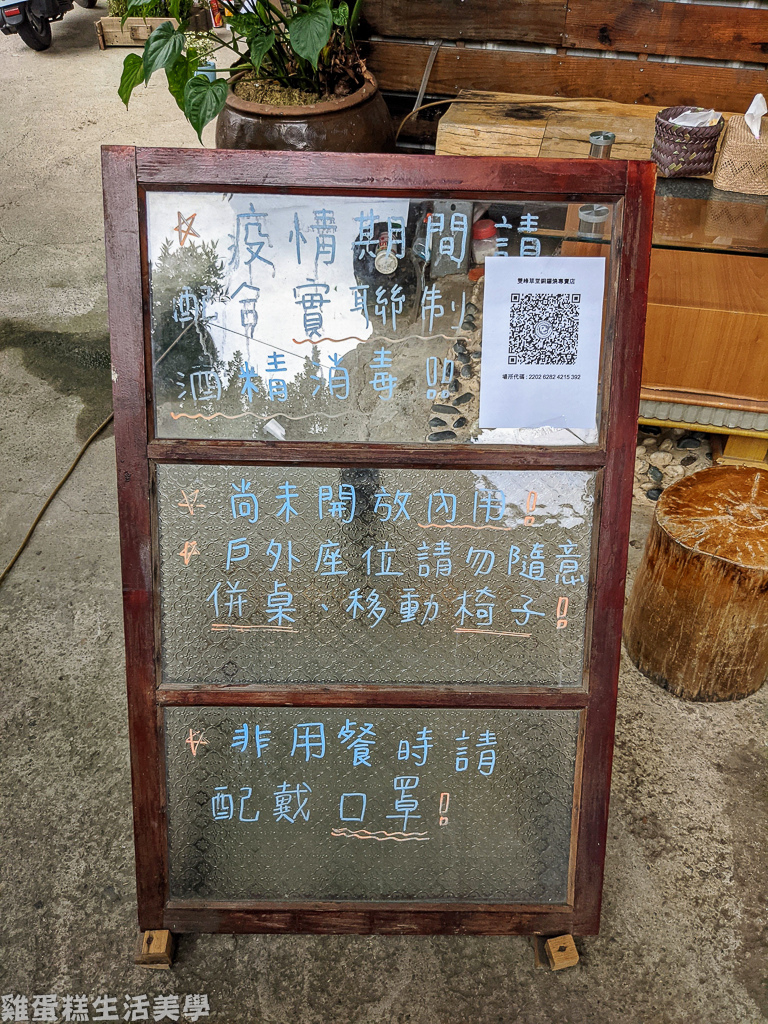 ☆ 疫情期間請
配合實聯制
酒精消毒!!
雙峰草堂銅鑼燒專賣店
場所代碼：2202 6282 4215 392
☆ 尚未開放內用!
☆ 戶外座位請勿隨意
併桌、移動椅子!
☆ 非用餐時請
配戴口罩!
雞蛋糕生活美學